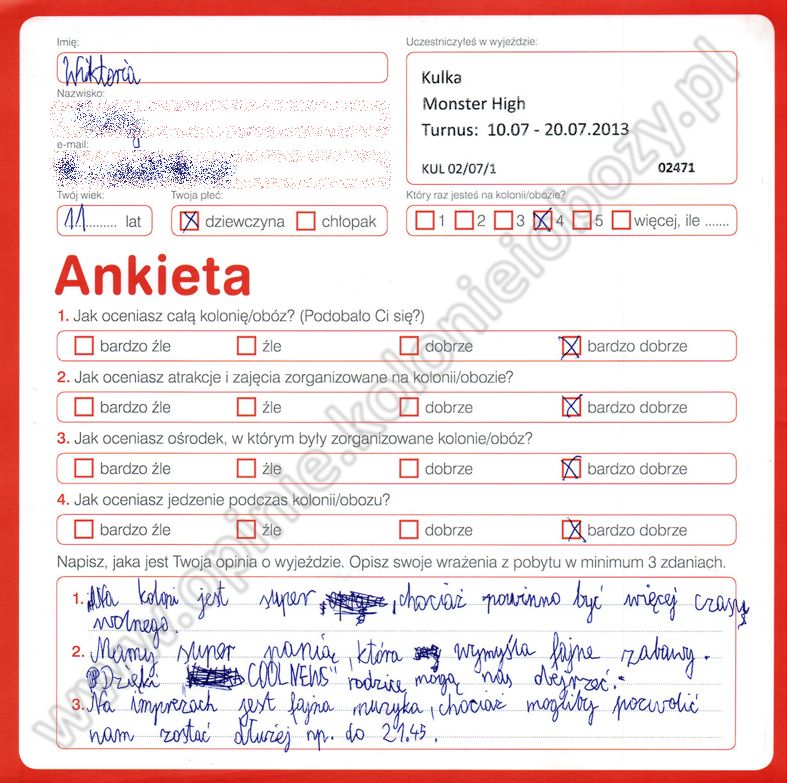 Imię:
Uczestniczyłeś w wyjeździe:
Wiktoria
Kulka
Monster High
Turnus: 10.07 - 20.07.2013
KUL 02/07/1 02471
Nazwisko:
e-mail:
Twój wiek: Twoja płeć: Który raz jesteś na kolonii/obozie?
11 lat dziewczyna chłopak 1 2 3 4 5 więcej, ile .......
Ankieta
1. Jak oceniasz całą kolonię/obóz? (Podobało Ci się?)
bardzo źle źle dobrze bardzo dobrze
2. Jak oceniasz atrakcje i zajęcia zorganizowane na kolonii/obozie?
bardzo źle źle dobrze bardzo dobrze
3. Jak oceniasz ośrodek, w którym były zorganizowane kolonie/obóz?
bardzo źle źle dobrze bardzo dobrze
4. Jak oceniasz jedzenie podczas kolonii/obozu?
bardzo źle źle dobrze bardzo dobrze
Napisz, jaka jest Twoja opinia o wyjeździe. Opisz swoje wrażenia z pobytu w minimum 3 zdaniach.
1. Na koloni jest super, chociaż powinno być więcej czasu
wolnego.
2. Mamy super panią, która wymyśla fajne zabawy.
Dzięki "COOL NEWS" rodzice mogą nas dojrzeć.
3. Na imprezach jest fajna muzyka, chociaż mogliby pozwolić
nam zostać dłużej np. do 21.45.
www.opinie.kolonieiobozy.pl